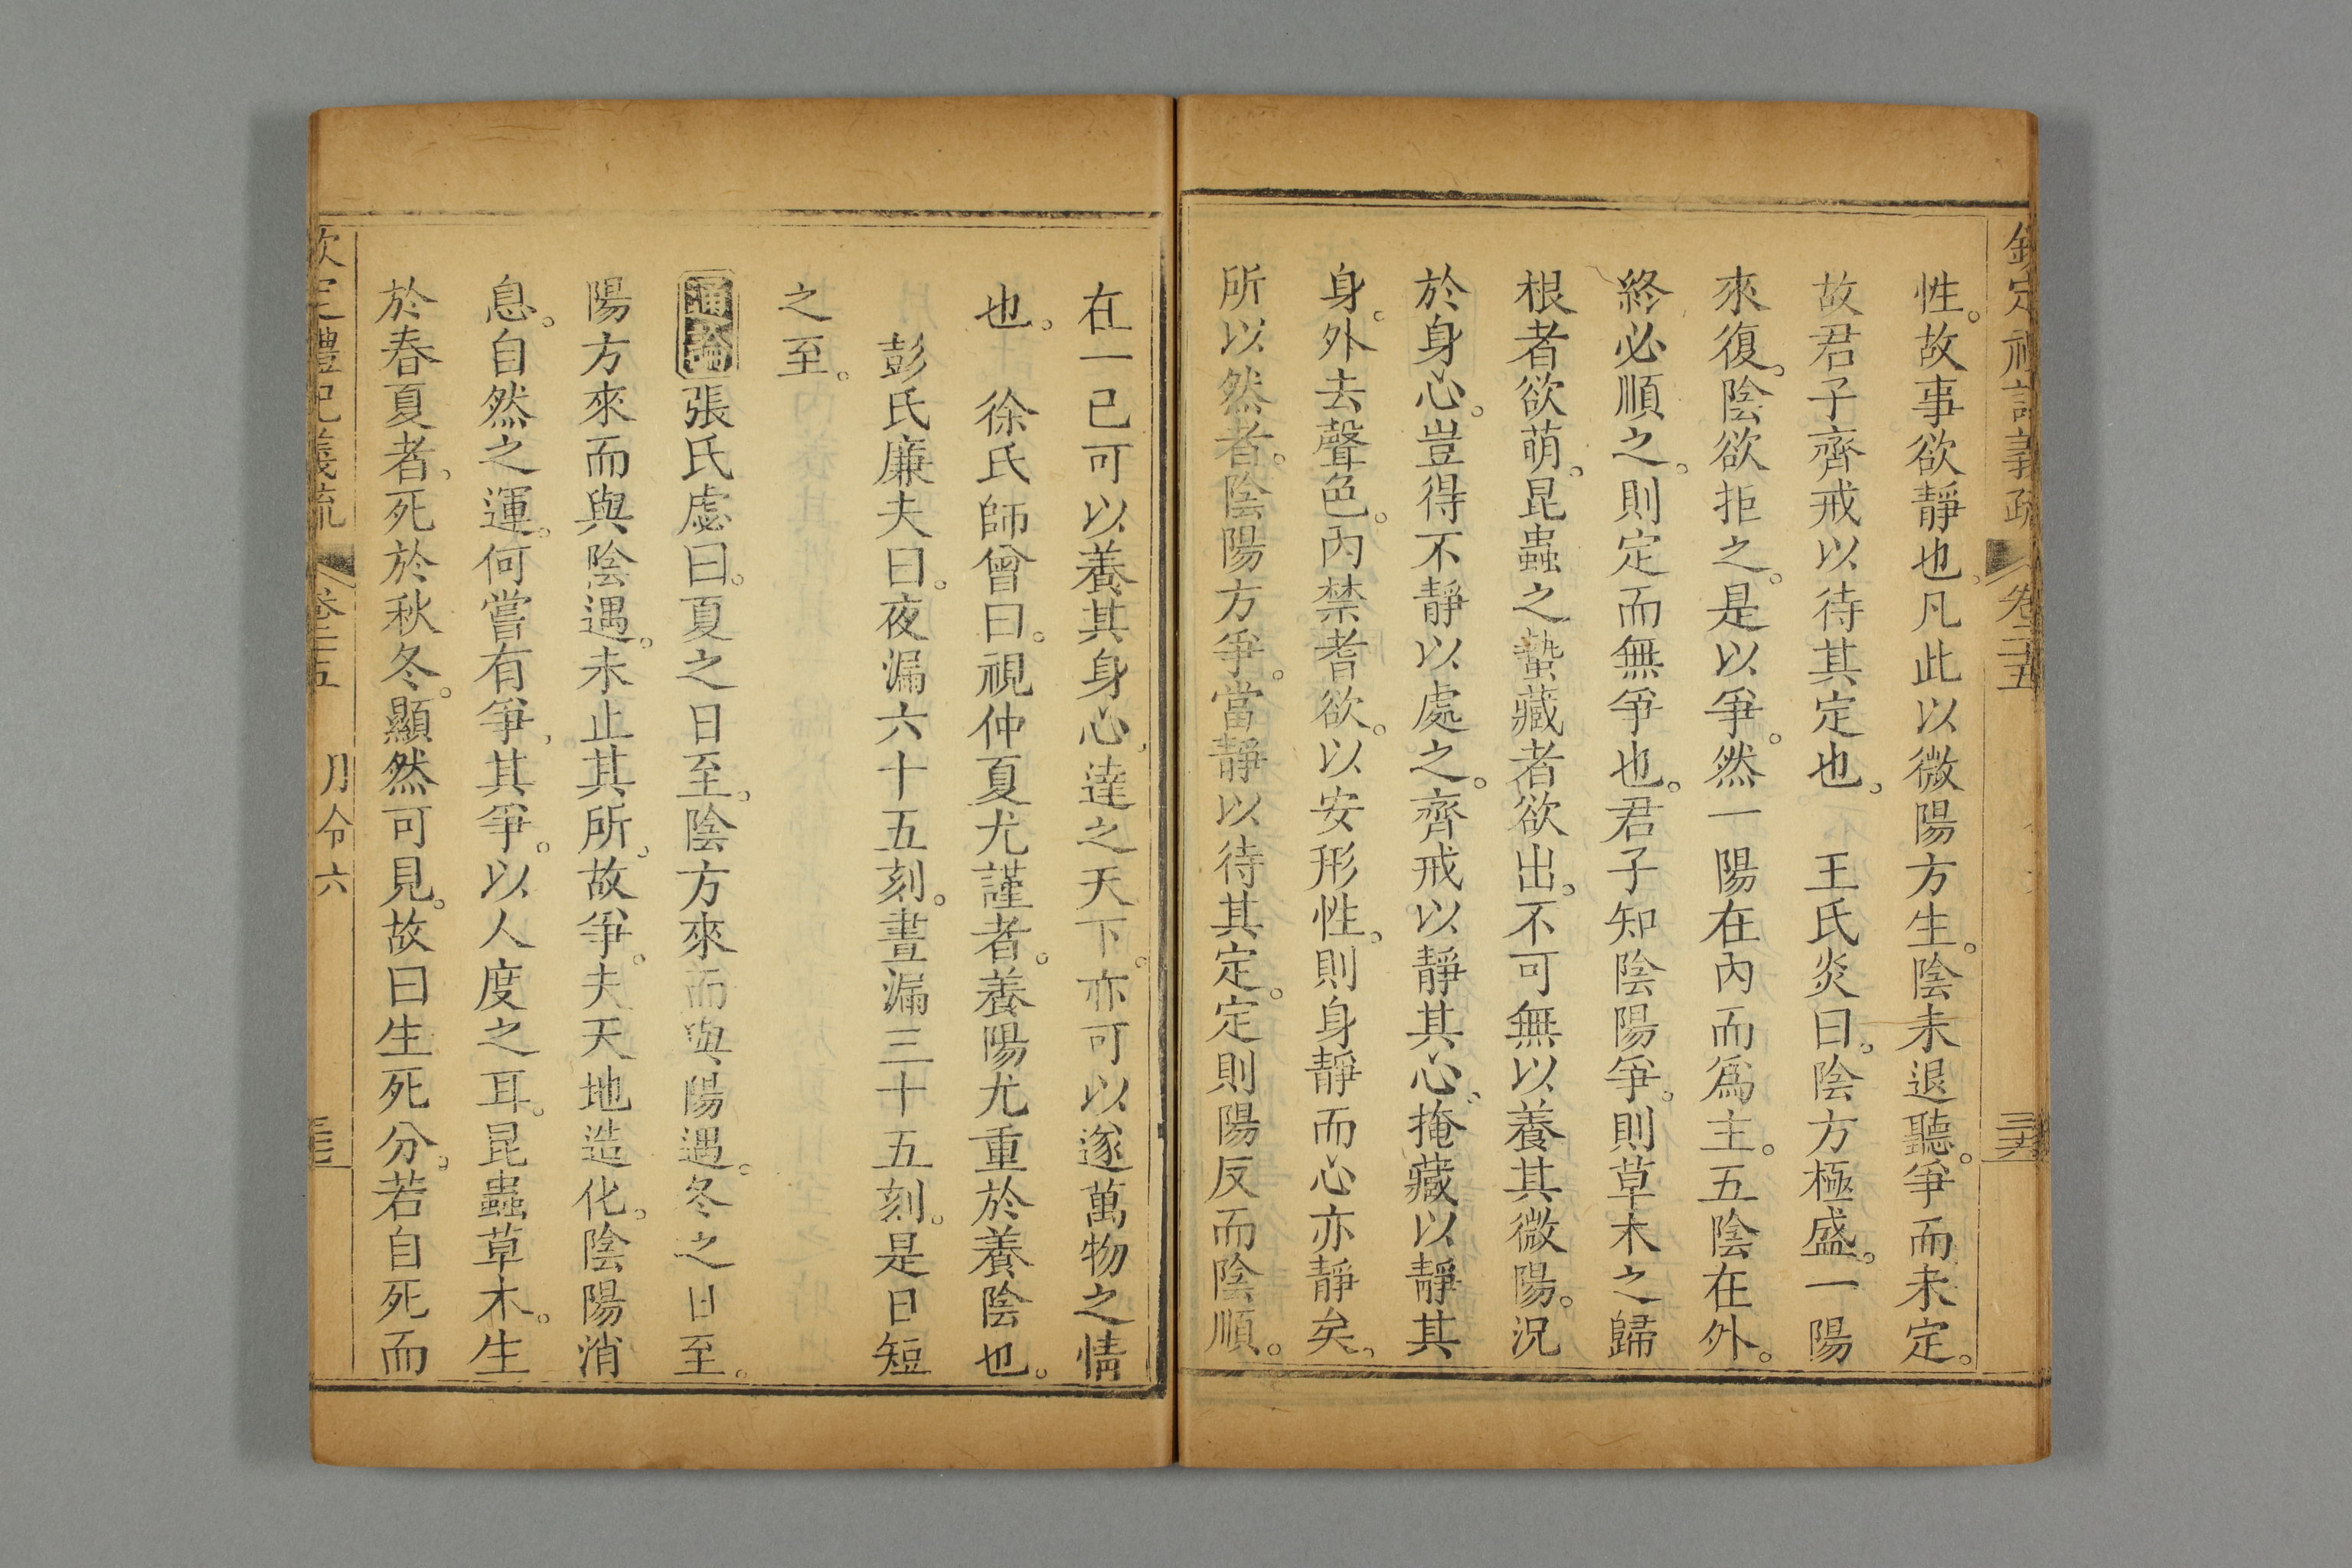 欽定禮記義疏 卷二十五 三六
性。故事欲靜也。凡此以微陽方生。陰未退聽。爭而未定。
故君子齊戒以待其定也。 王氏炎曰。陰方極盛。一陽
來復。陰欲拒之。是以爭。然一陽在內而爲主。五陰在外。
終必順之。則定而無爭也。君子知陰陽爭。則草木之歸
根者欲萌。昆蟲之蟄藏者欲出。不可無以養其微陽。況
於身心。豈得不靜以處之。齊戒以靜其心。掩藏以靜其
身。外去聲色。內禁耆欲。以安形性。則身靜而心亦靜矣。
所以然者。陰陽方爭。當靜以待其定。定則陽反而陰順。
在一己可以養其身心。達之天下。亦可以遂萬物之情
也。 徐氏師曾曰。視仲夏尤謹者。養陽尤重於養陰也。
彭氏廉夫曰。夜漏六十五刻。晝漏三十五刻。是日短
之至。
通論張氏虙曰。夏之日至。陰方來而與陽遇。冬之日至。
陽方來而與陰遇。未止其所。故爭。夫天地造化。陰陽消
息。自然之運。何嘗有爭。其爭。以人度之耳。昆蟲草木。生
於春夏者。死於秋冬。顯然可見。故曰生死分。若自死而
欽定禮記義疏 卷二十五 月令六